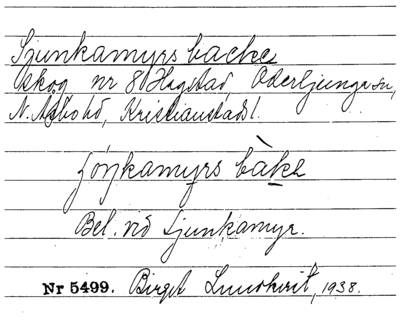 Sjunkamyrs backe
skog nr 8 Hagstad, Oderljunga sn,
N. Åsbo hd, Kristianstads l.
jonkamyrs bàke
Bel. vid Sjunkamyr.
Nr 5499. Birgit Lundkvist, 1938.